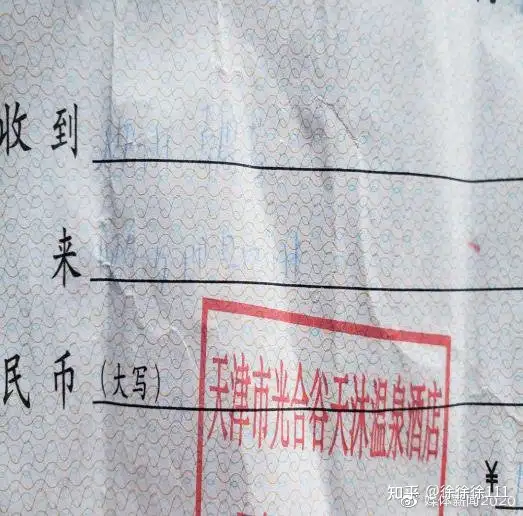 收到
来
民币（大写）
天津市光合谷天沐温泉酒店
¥
知乎 @徐徐徐111
媒体新闻2020